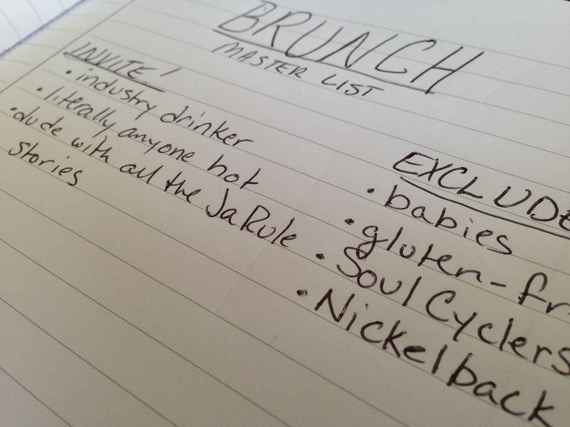 BRUNCH
MASTER LIST
INVITE!
• industry drinker
• literally anyone hot
• dude with all the JaRule
stories
EXCLUDE
• babies
• gluten-fr
• SoulCyclers
• Nickelback